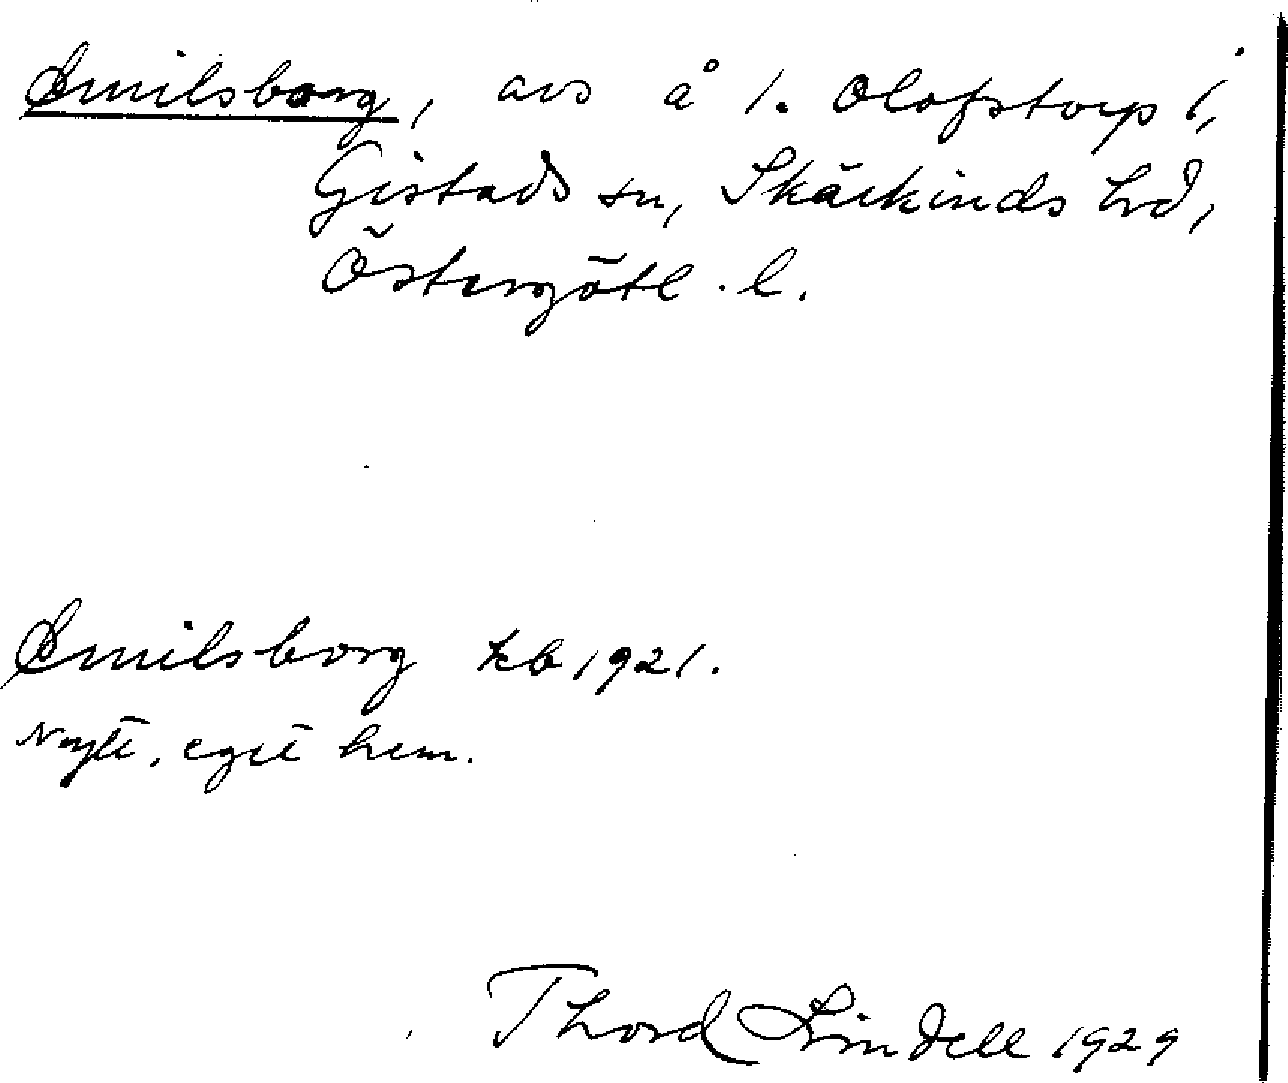 Emilsborg, avs å 1. Olofstorp i,
Gistads sn, Skärkinds hd,
Östergötl. l.
Emilsborg kb 1921.
Nytt, eget hem.
Thord Lindell 1929